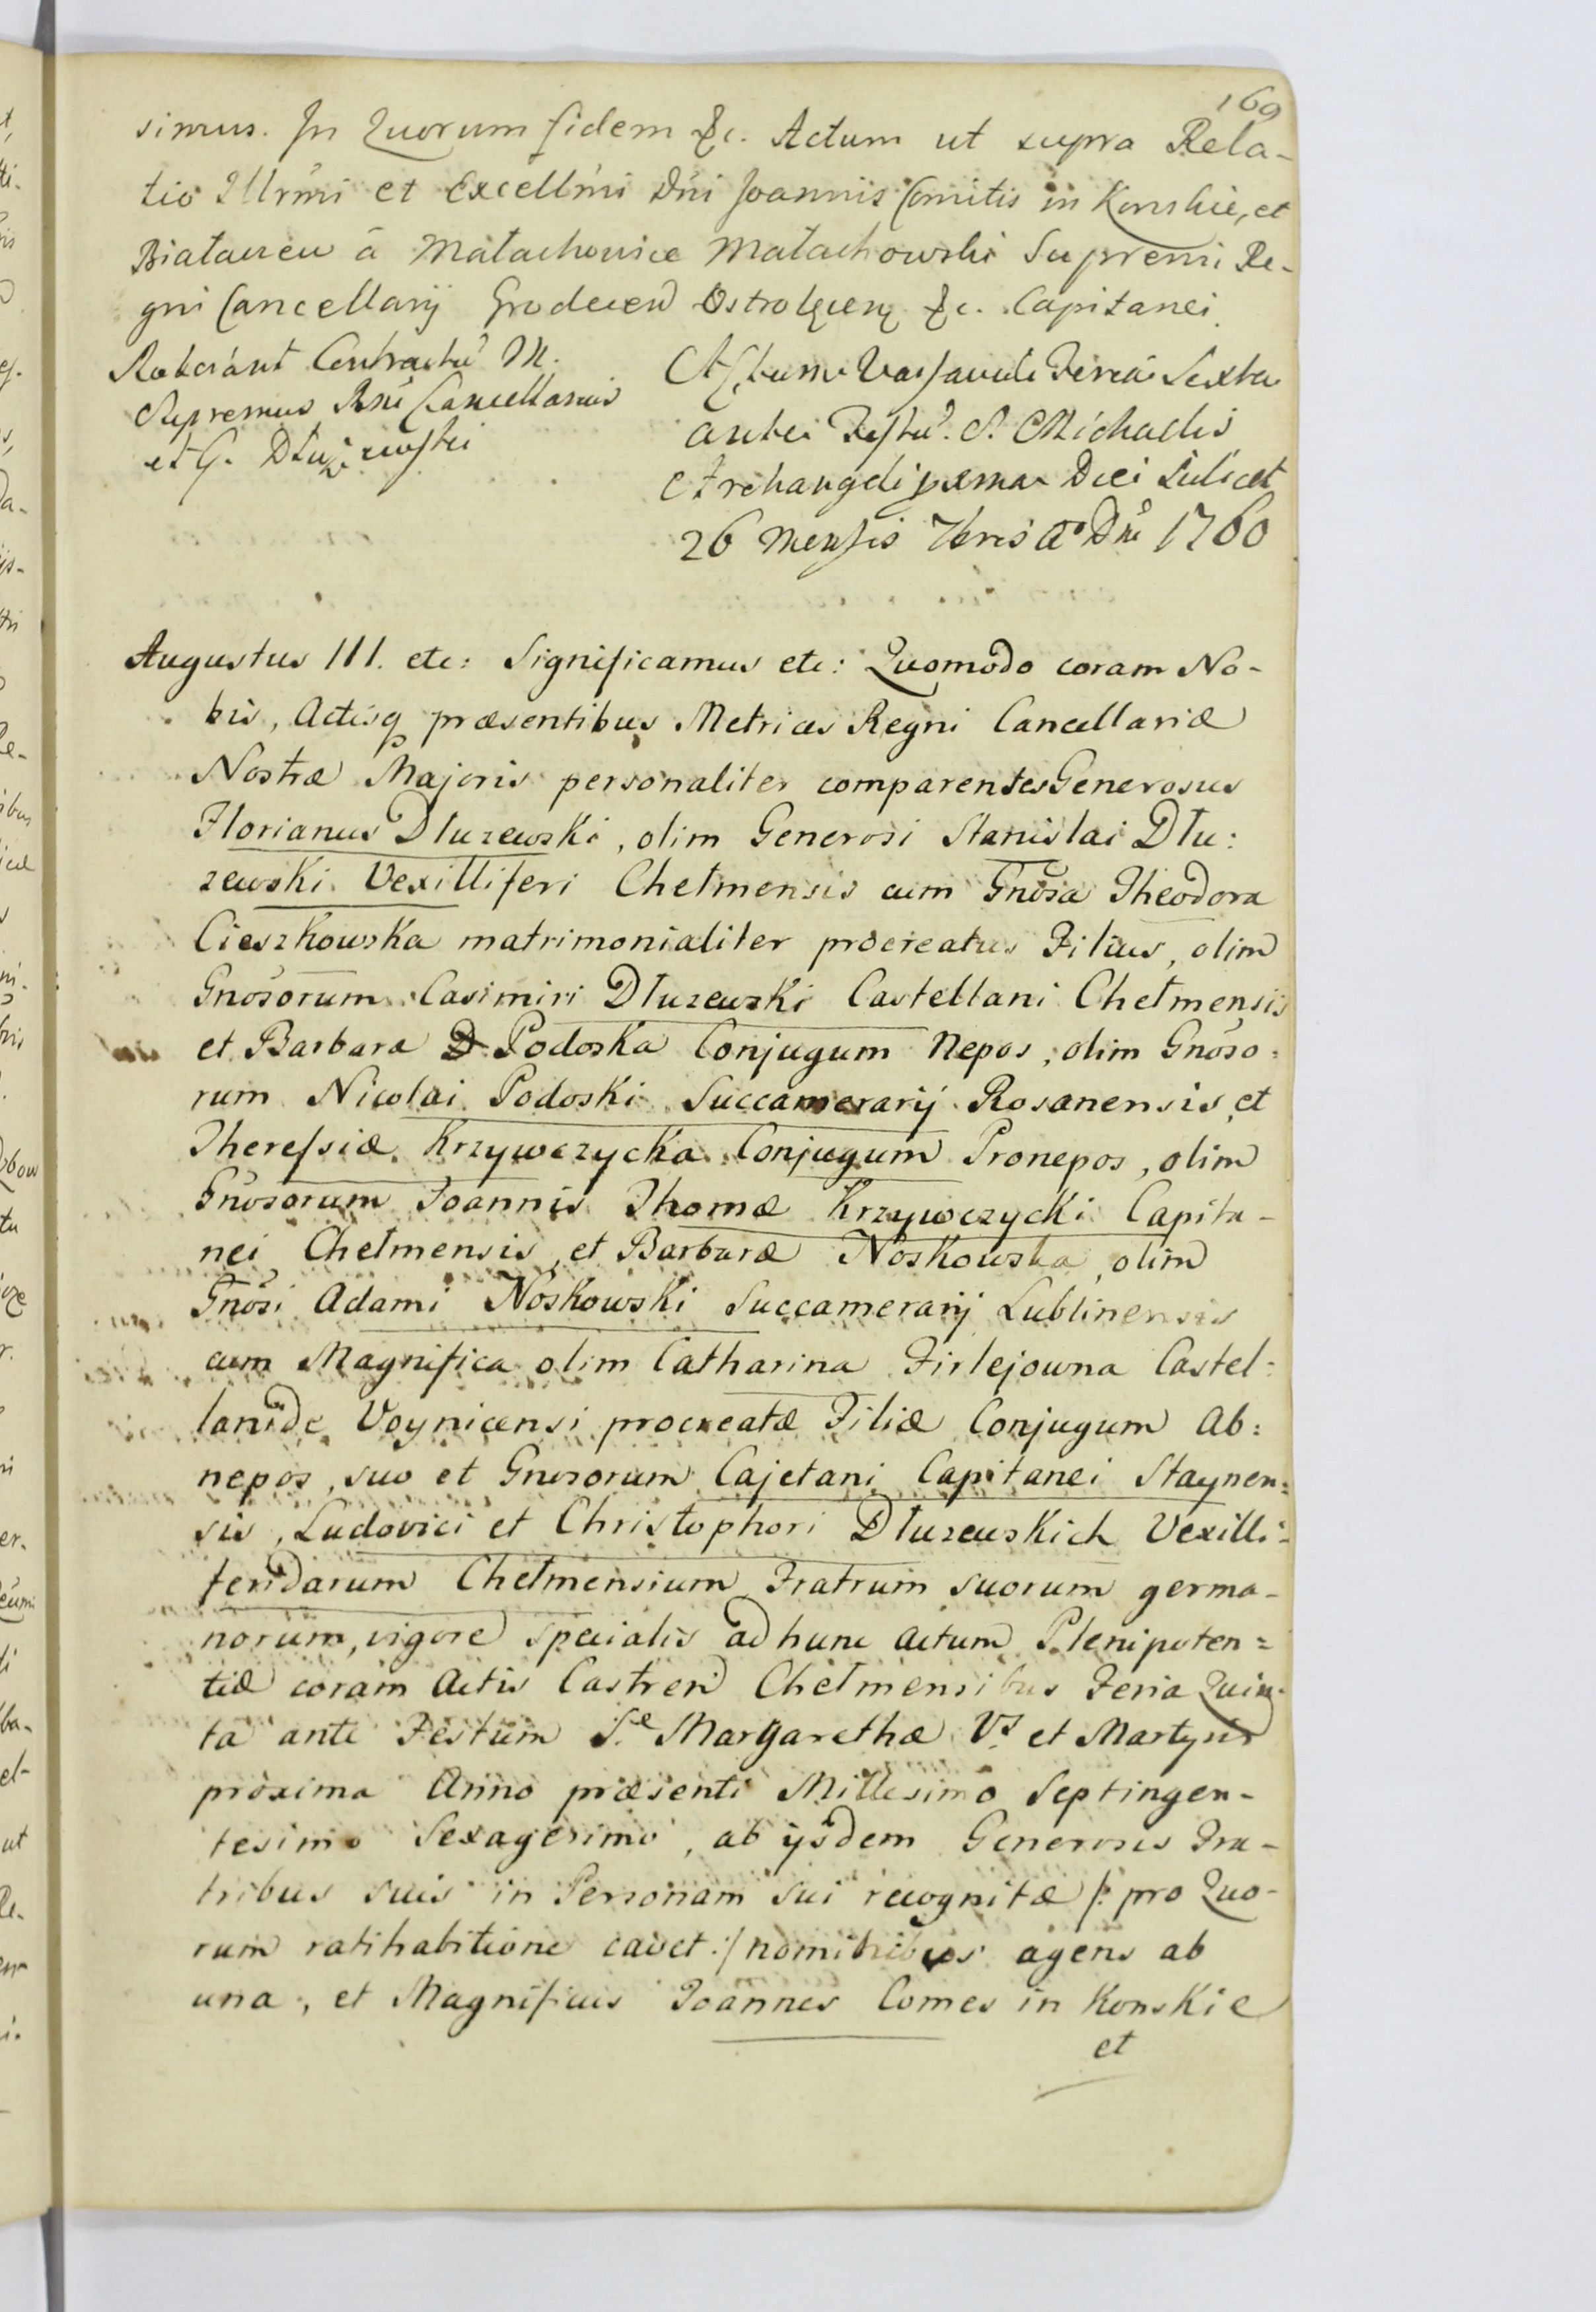 169
simus. In Quorum fidem &c. Actum ut supra Rela-
tio Illrmi et Excellmi Dni Joannis Comitis in Konskie, et
Białaczew á Małachowice Małachowski Supremi Re-
gni Cancellarij Grodecen Ostrołęcen &c. Capitanei
Roborant Contractu M.
Supremus Rni Cancellarius
et G. Dłużewski
Actum Varsaviæ Feria Sexta
ante Festu S. Michaelis
Archangeli pxma Diei Scilicet
26 Mensis 7bris Ao Dni 1760
Augustus III. etc: Significamus etc: Quomodo coram No-
bis, Actisq præsentibus Metrices Regni Cancellariæ
Nostræ Majoris personaliter comparentes Generosus
Florianus Dłuzewski, olim Generosi Stanislai Dłu:
zewski Vexilliferi Chełmensis cum Gnosa Theodora
Cieszkowska matrimonialiter procreatus Filius, olim
Gnosorum Casimiri Dłuzewski Castellani Chełmensis
et Barbara Podoska Conjugum Nepos, olim Gnoso:
rum Nicolai Podoski Succamerarij Rosanensis, et
Theressiæ Krzywczycka Conjugum Pronepos, olim
Gnosorum Joannis Thomæ Krzywczycki Capita-
nei Chełmensis, et Barbaræ Noskowska, olim
Gnosi Adami Noskowski Succamerarij Lublinensis
cum Magnifica olim Catharina Firlejowna Castel:
lanide Voynicensi procreatæ Filiæ Conjugum Ab:
nepos, suo et Gnosorum Cajetani Capitanei Staynen:
sis, Ludovici et Christophori Dłuzewskich Vexilli-
feridarum Chełmensium Fratrum suorum germa-
norum, vigore specialis ad hunc actum Plenipoten=
tiæ coram Actis Castren Chełmensibus Feria Quin-
ta ante Festum S.e Margarethæ V.s et Martyris
proxima Anno præsenti Millesimo Septingen-
tesimo Sexagesimo, ab ijsdem Generosis Fra-
tribus suis in Personam sui recognitæ /: pro Quo-
rum ratihabitione cavet :/ nominibus agens ab
una, et Magnificus Joannes Comes in Konskie
et